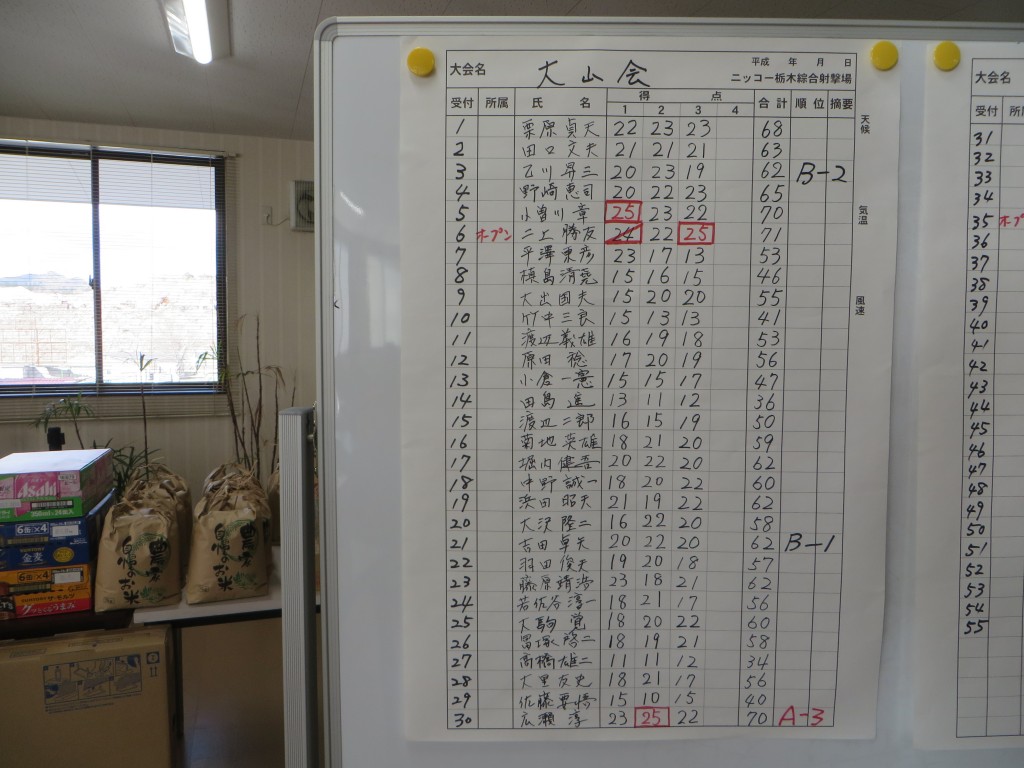 平成 年 月 日
大会名 大山会 ニッコー栃木綜合射撃場
受付 所属 氏 名 得 点 合計 順位 摘要
1 2 3 4
1 栗原貞夫 22 23 23 68
2 田口文夫 21 21 21 63
3 石川昇三 20 23 19 62 B-2
4 野崎恵司 20 22 23 65
5 小曽川章 25 23 22 70
6 オープン 二上勝友 24 22 25 71
7 平澤東彦 23 17 13 53
8 槙島清亮 15 16 15 46
9 大出国夫 15 20 20 55
10 竹中三良 15 13 13 41
11 渡辺義雄 16 19 18 53
12 原田稔 17 20 19 56
13 小倉一憲 15 15 17 47
14 田島進 13 11 12 36
15 渡辺二郎 16 15 19 50
16 菊地英雄 18 21 20 59
17 堀内健吾 20 22 20 62
18 中野誠一 18 20 22 60
19 浜田昭夫 21 19 22 62
20 大沢隆二 16 22 20 58
21 吉田卓夫 20 22 20 62 B-1
22 羽田俊夫 19 20 18 57
23 藤原靖浩 23 18 21 62
24 若佐谷淳一 18 21 17 56
25 大駒寛 18 20 22 60
26 冨塚隆二 18 19 21 58
27 高橋雄二 11 11 12 34
28 大里友史 18 21 17 56
29 佐藤要悟 15 10 15 40
30 広瀬淳 23 25 22 70 A-3
天候
気温
風速
大会名
受付 所
31
32
33
34
35 オープ
36
37
38
39
40
41
42
43
44
45
46
47
48
49
50
51
52
53
54
55
Asahi
6缶×4
金麦
6缶×4